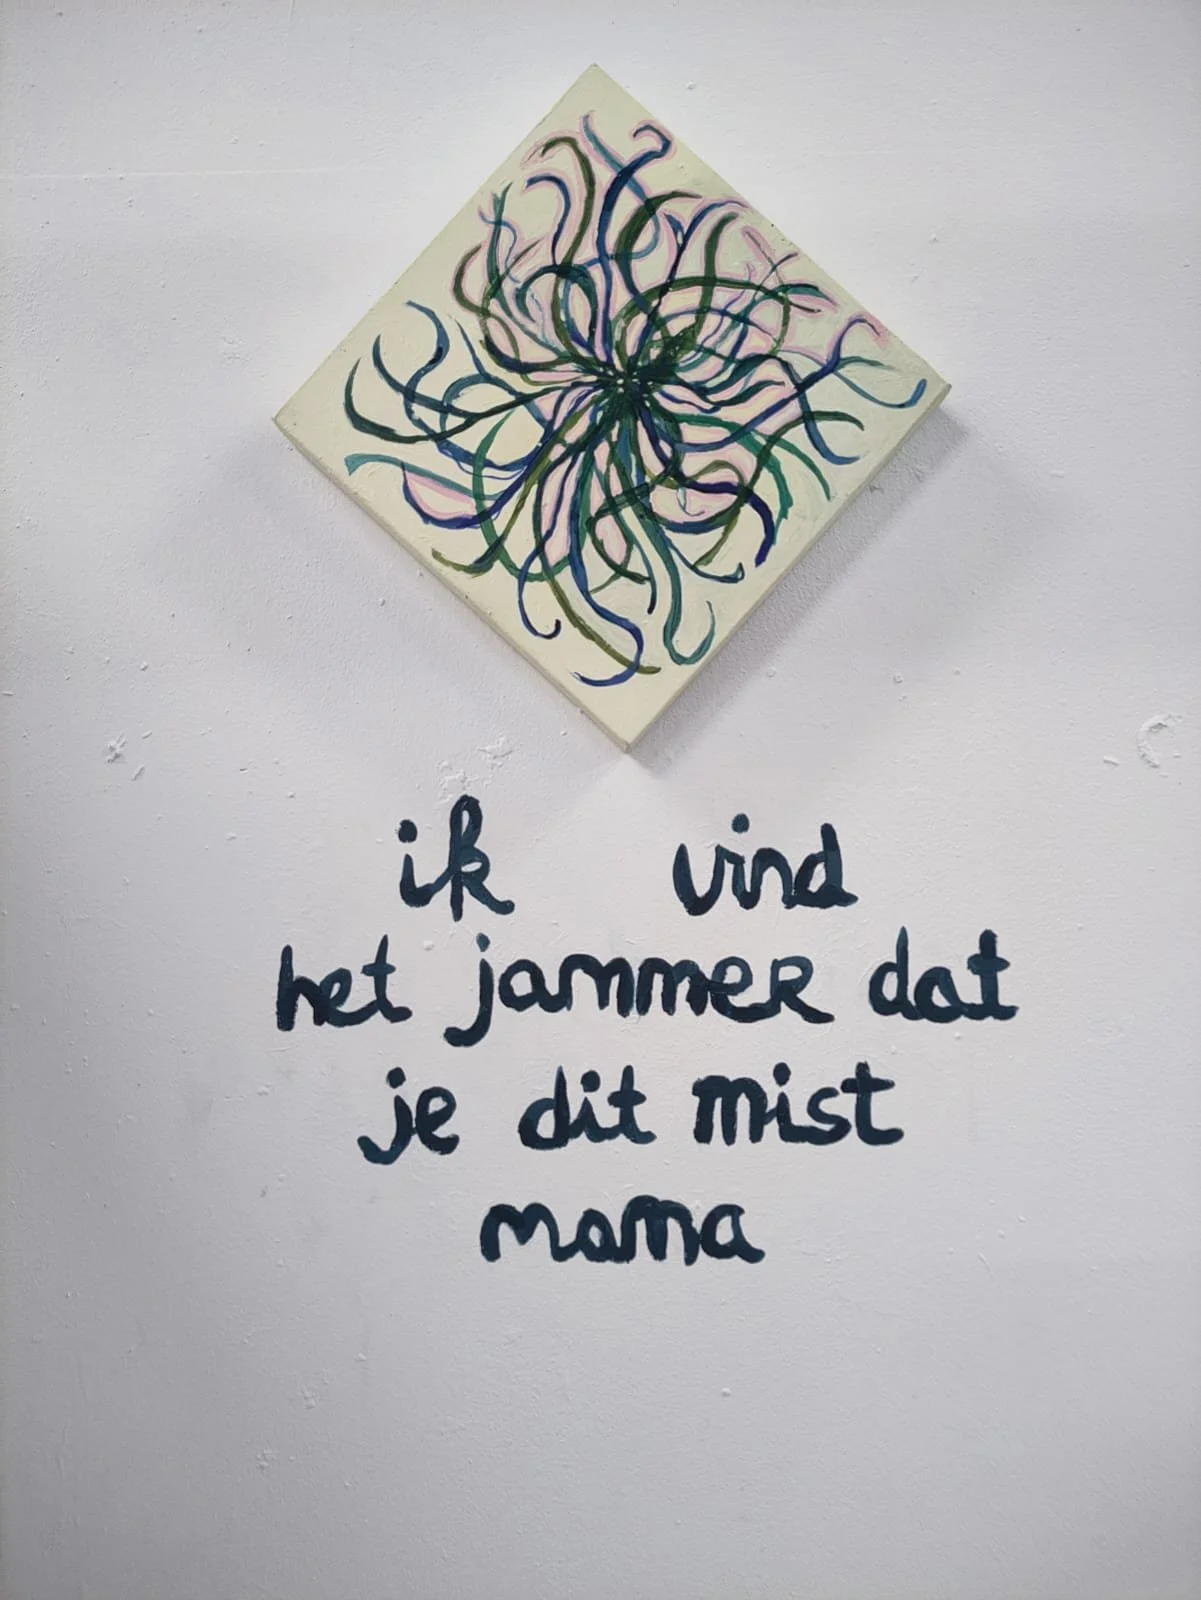 ik vind
het jammer dat
je dit mist
mama